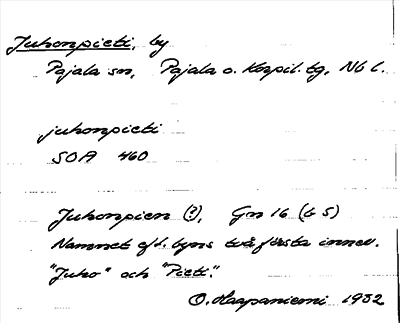 Juhonpieti, by
Pajala sn, Pajala o. Korpil. tg, Nb l.
juhonpieti
SOA 460
Juhonpien (?), Gn 16 (b 5)
Namnet eft. byns två första innev.
"Juho" och "Pieti".
O. Haapaniemi 1932